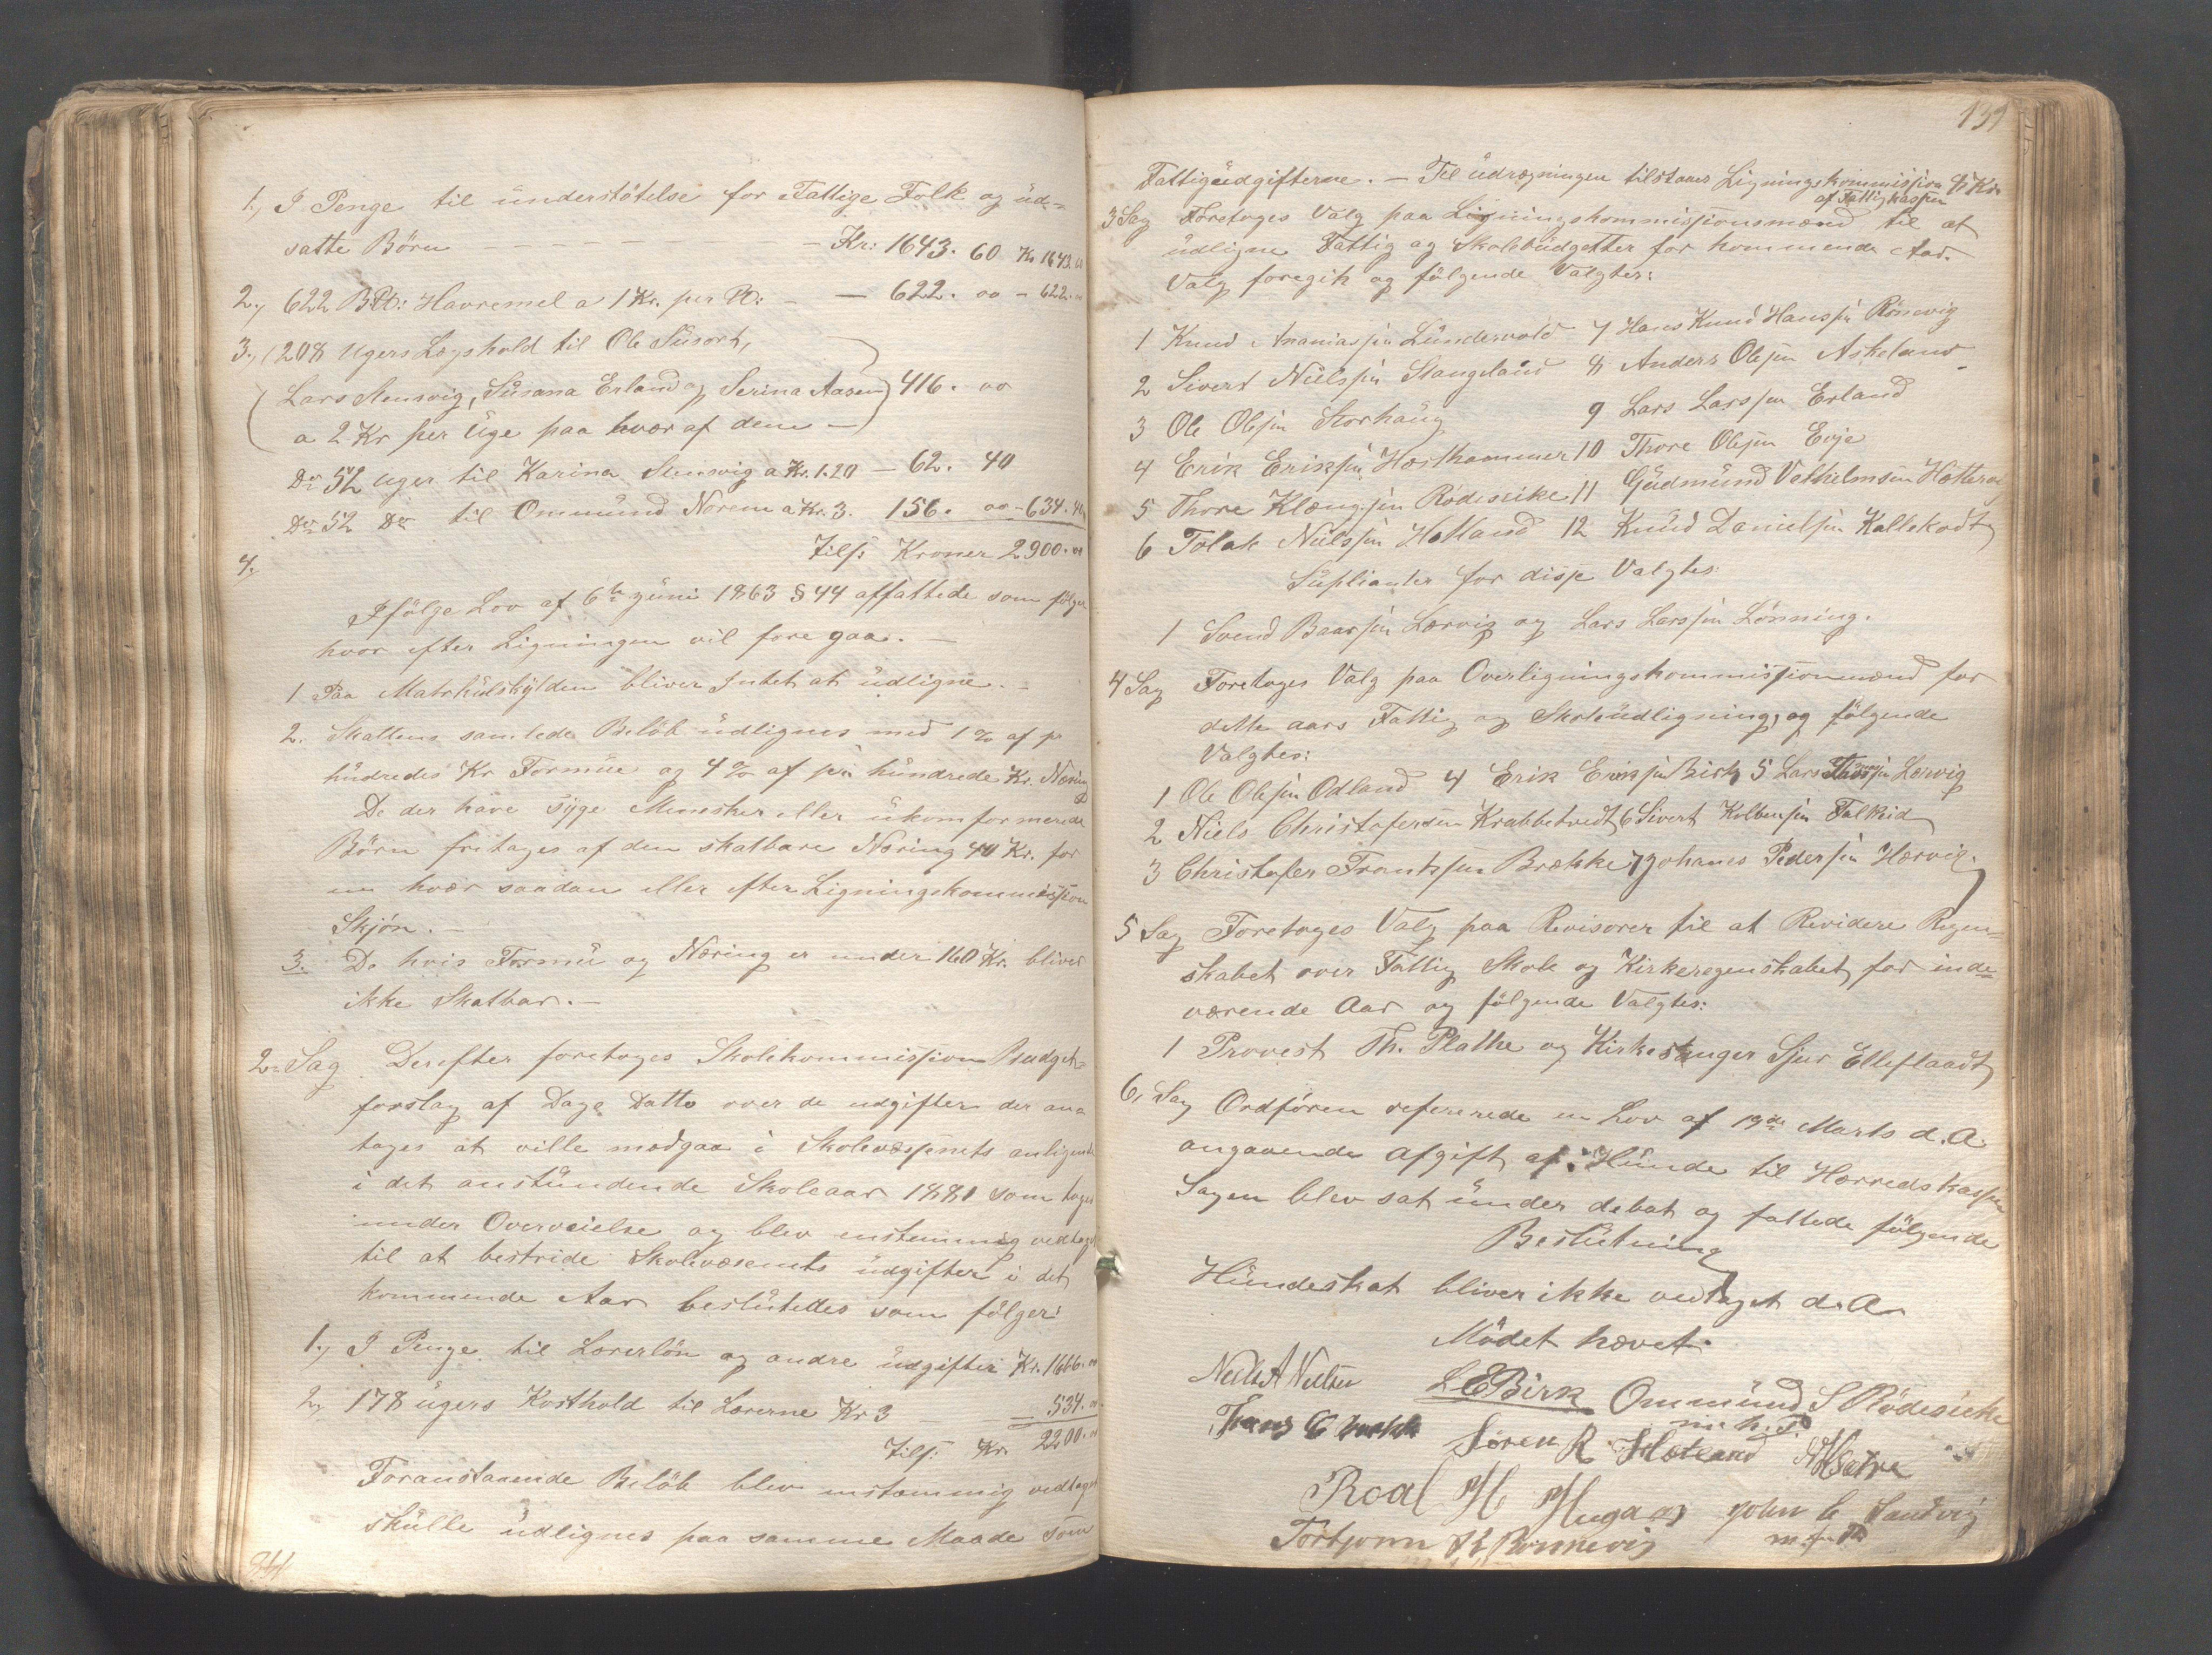 1., I Penge til understötelse for Fattige Folk og ud=
satte Börn — Kr: 1643. 60 Kr 1643.60
2., 622 B℔: Havremel a 1 Kr. per ℔: — 622. 00 - 622.00
3., (208 Ugers Lægshold til Ole Susort,
Lars Stensvig, Susana Erland og Serina Aasen) 416. 00
a 2 Kr per Uge paa hvær af dem —
Do 52 Uger til Karina Stensvig a Kr. 1.20 — 62. 40
Do 52 Do til Ommund Norem a Kr. 3. 156. 00 - 634.40
Tils: Kroner 2900.00
4.
Ifölge Lov af 6te Juni 1863 § 44 affattede som fölger
hvor efter Ligningen vil fore gaa. —
1 Paa Matrkulskylden bliver Intet at udligne. —
2. Skattens samlede Belöb udlignes med 1 % af pr
hudredes Kr Formue og 4 % af pr hundrede Kr. Næring
De der have syge Mennesker eller ukomformerede
Börn fritages af den skatbare Næring 40 Kr. for
en hvær saadan eller efter Ligningskommission
Skjön. —
3. De hvis Formue og Næring er under 160 Kr. bliver
ikke Skatbar. —
2. Sag Derefter foretoges Skolekommission Budget=
forslag af Dags Datto over de udgifter der ana
tages at ville medgaa i Skolevæssenets anligende
i det anstundende Skoleaar 1881 som toges
under Overveielse og blev enstemmig vedtaget
til at bestride Skolevæsenets udgifter i det
kommende Aar beslutedes som fölger:
1., I Penge til Lærerlön og andre udgifter Kr. 1666.00
2, 178 ugers Kosthold til Lærerne Kr 3 — 534.00
Tils: Kr. 2200.00
Foranstaaende Belöb blev enstemmig vedtaget
skulle udlignes paa samme Maade som
131
Fattigudgifterne. — Til udregningen tilstaaes Ligningskommission 4 Kr.
af Fattigkassen
3 Sag Foretoges Valg paa Ligningskommissionsmænd til at
udligne Fattig og Skolebudgetter for kommende Aar.
Valg foregik og fölgende Valgtes:
1 Knud Ananiassen Lundervold 7 Hans Knud Hanssen Rönevig
2 Sivert Nielssen Stangeland 8 Anders Olesen Askeland
3 Ole Olesen Storhaug 9 Lars Larssen Erland
4 Erik Erikssen Hæsthammer 10 Thore Olesen Evje
5 Thore Klængssen Rödeseike 11 Gudmund Velhelmsen Hætterø
6 Tolak Nielssen Hetland 12 Knud Danielsen Kallekodt
Suplianter for disse Valgtes:
1 Svend Baarssen Lærvig og Lars Larssen Lönning.
4 Sag Foretoges Valg paa Overligningskommissionmænd for
dette aars Fattig og Skoleudligning, og fölgende
Valgtes:
1 Ole Olesen Odland 4 Erik Erikssen Birk 5 Lars Lærvig
2 Niels Christofersen Krabbetvedt 6 Sivert Kolbensen Falkeid
3 Christofer Frantssen Brække 7 Johanes Pedersen Hærvig.
5 Sag Foretoges Valg paa Revisorer til at Revidere Regen=
skabet over Fattig Skole og Kirkeregenskabet for inde=
værende Aar og fölgende Valgtes:
1 Provest Th. Plathe og Kirkesanger Sjur Elleflaadt
6, Sag Ordfören refererede en Lov af 19de Marts d. A.
angaaende Afgift af Hunde til Hærredskassen
Sagen blev sat under debat og fattede fölgende
Beslutning
Hundeskat bliver ikke vedtaget d. A.
Mödet hævet.
Niels A Nielsen L E Birk Ommund S Rödeseike
m. h. P.
Frans C Søren R. Hetland
Roal H Hugaas John C Sandvig
Torbjonn K Ronnevig m f P